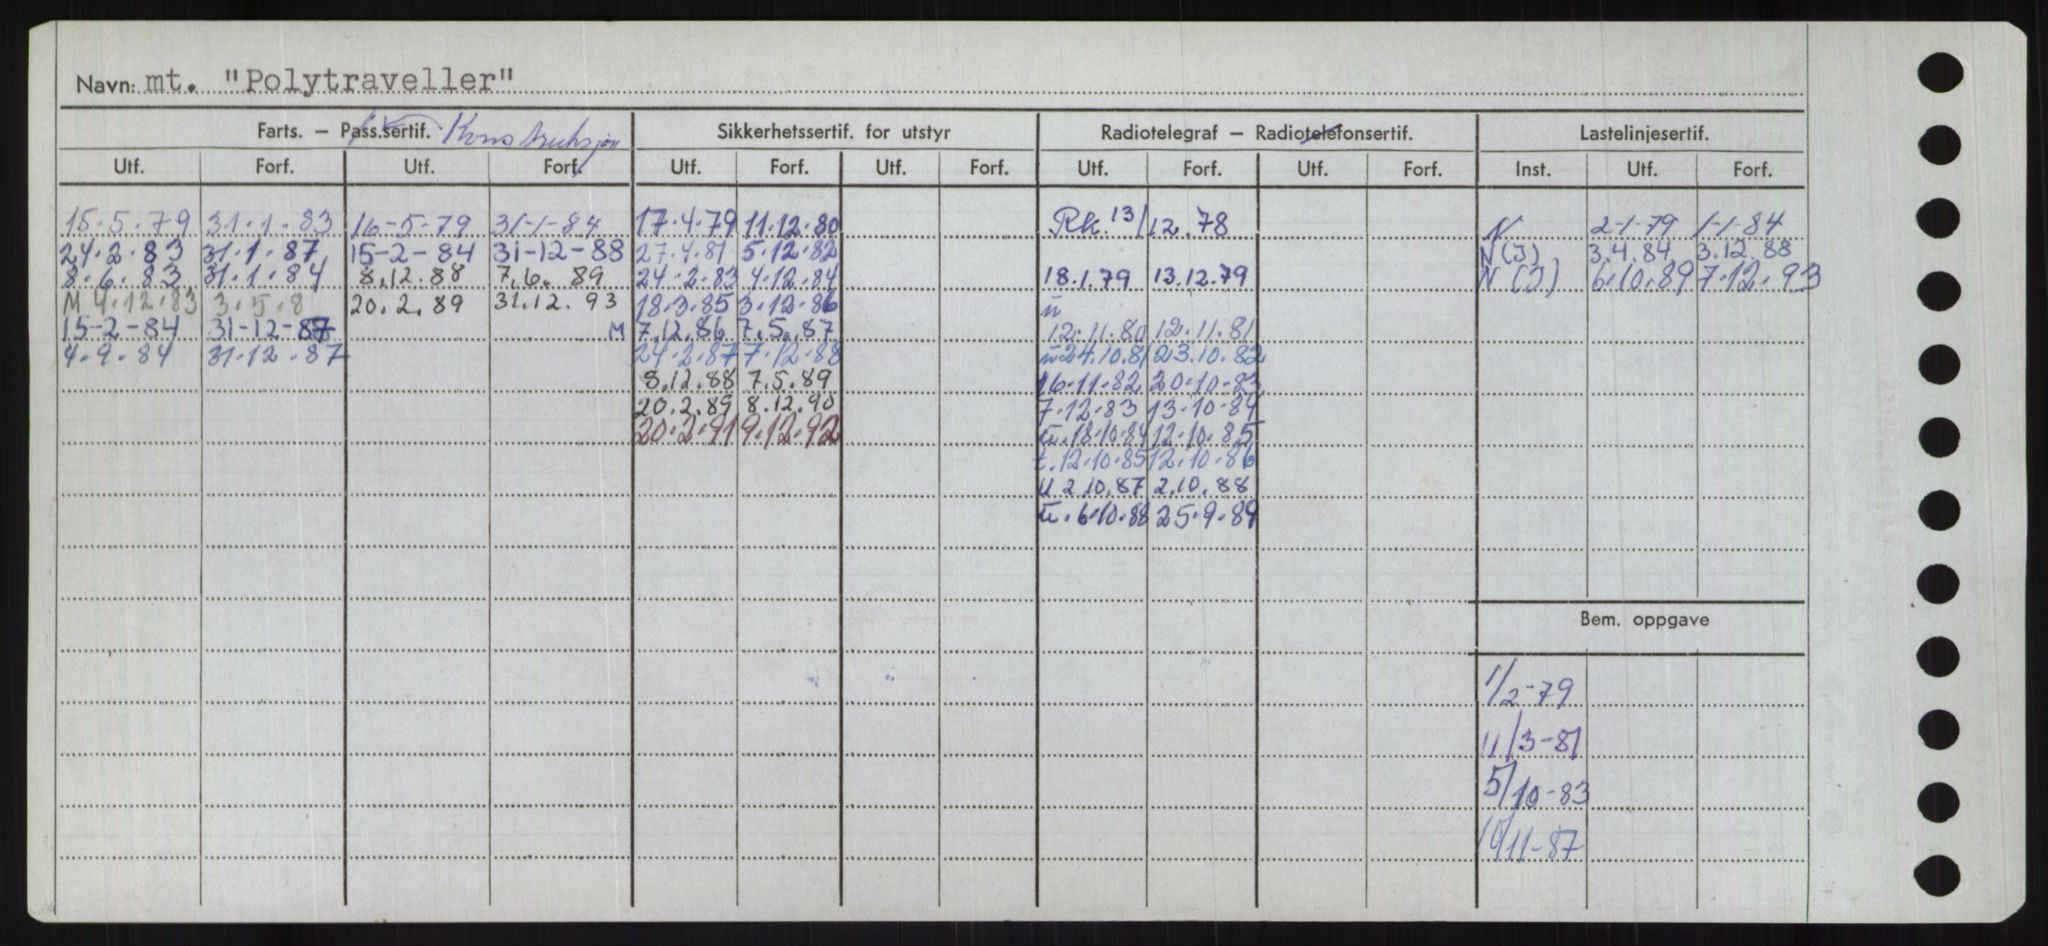 Navn: mt. "Polytraveller"
Farts. – Pass.sertif. Konstruksjon Sikkerhetssertif. for utstyr Radiotelegraf – Radiotelefonsertif. Lastelinjesertif.
Utf. Forf. Utf. Forf. Utf. Forf. Utf. Forf. Utf. Forf. Utf. Forf. Inst. Utf. Forf.
15.5.79 31.1.83 16-5-79 31-1-84 17.4.79 11.12.80 Rk. 13/12.78 N 2-1-79 1-1-84
24.2.83 31.1.87 15-2-84 31-12-88 27.4.81 5.12.82 N(I) 3.4.84 3.12.88
8.6.83 31.1.84 8.12.88 7.6.89 24.2.83 4.12.84 18.1.79 13.12.79 N(I) 6.10.89 7.12.93
M 4.12.83 3.5.8 20.2.89 31.12.93 18.3.85 3.12.86 u
15-2-84 31-12-87 M 7.12.86 7.5.87 12.11.80 12.11.81
4.9.84 31.12.87 24.2.87 7.12.88 u 24.10.81 23.10.82
8.12.88 7.5.89 16.11.82 20.10.83
20.2.89 8.12.90 7.12.83 13.10.84
20.2.91 9.12.92 u.18.10.84 12.10.85
t.12.10.85 12.10.86
u 2.10.87 2.10.88
u.6.10.88 25.9.89
Bem. oppgave
1/2-79
11/3-81
5/10-83
11-87